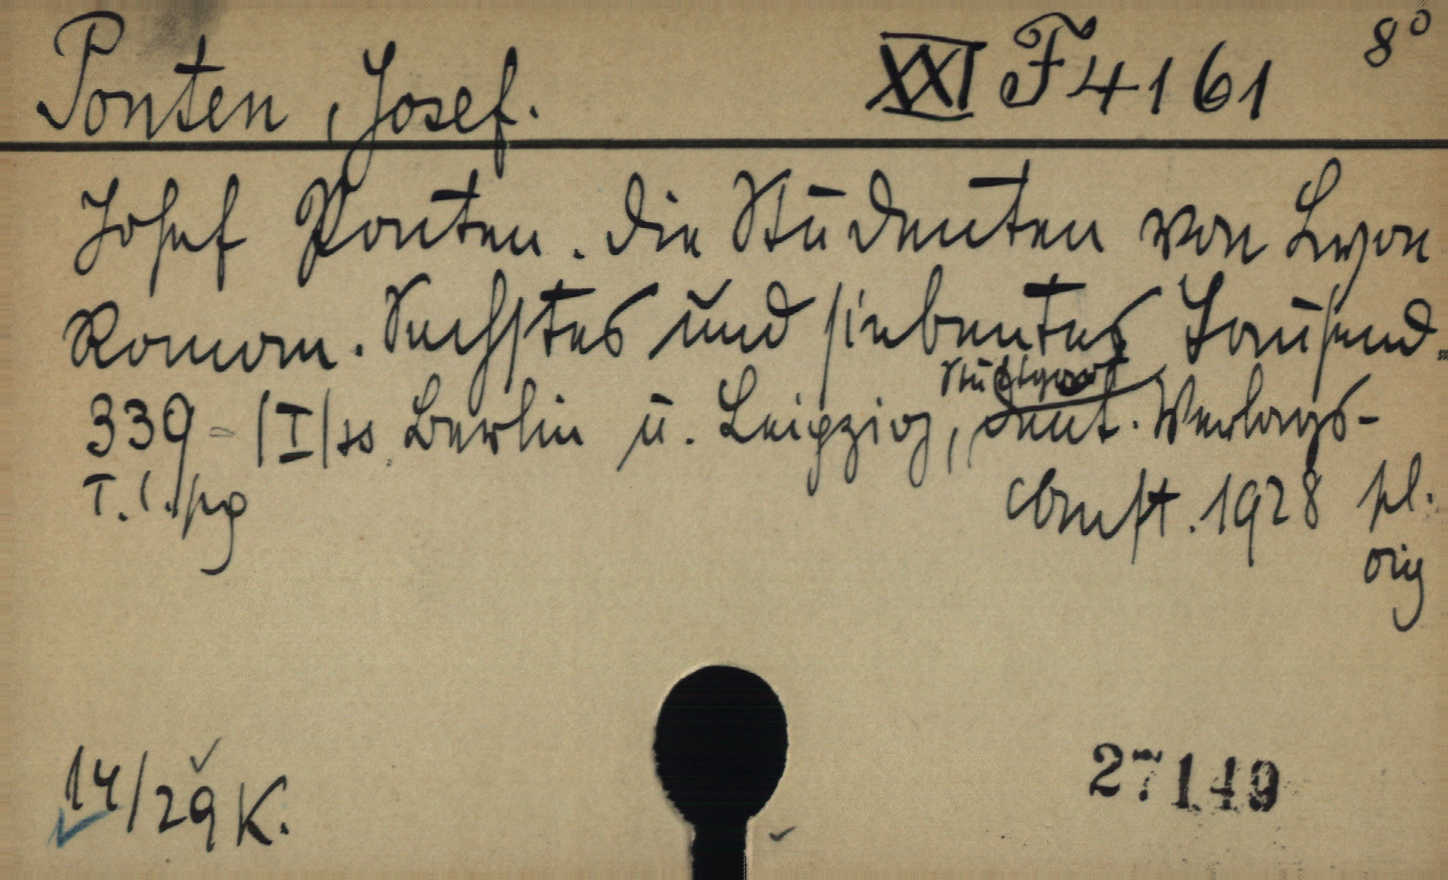 Ponten, Josef. XXI F 4161 8°
Josef Ponten. Die Studenten von Lyon
Roman. Sechstes und siebentes Tausend.
Stuttgart
339 - |I| ss. Berlin u. Leipzig, Deut. Verlags-
T. l. Anst. 1928 pl.
orig
14/29 K. 27149